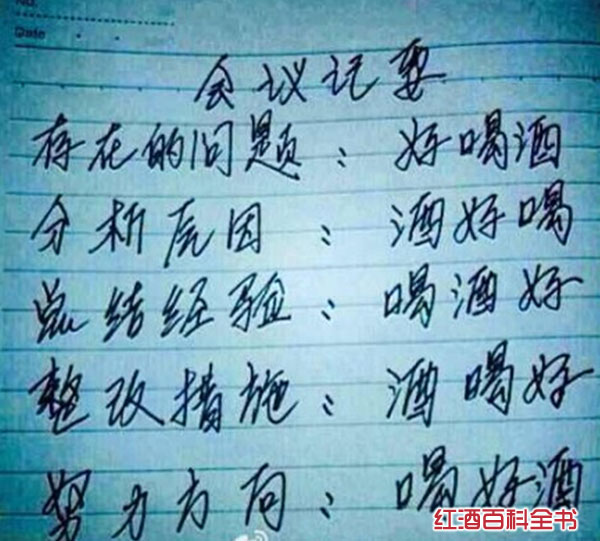 No.
Date
会议记要
存在的问题：好喝酒
分析原因：酒好喝
总结经验：喝酒好
整改措施：酒喝好
努力方向：喝好酒
红酒百科全书